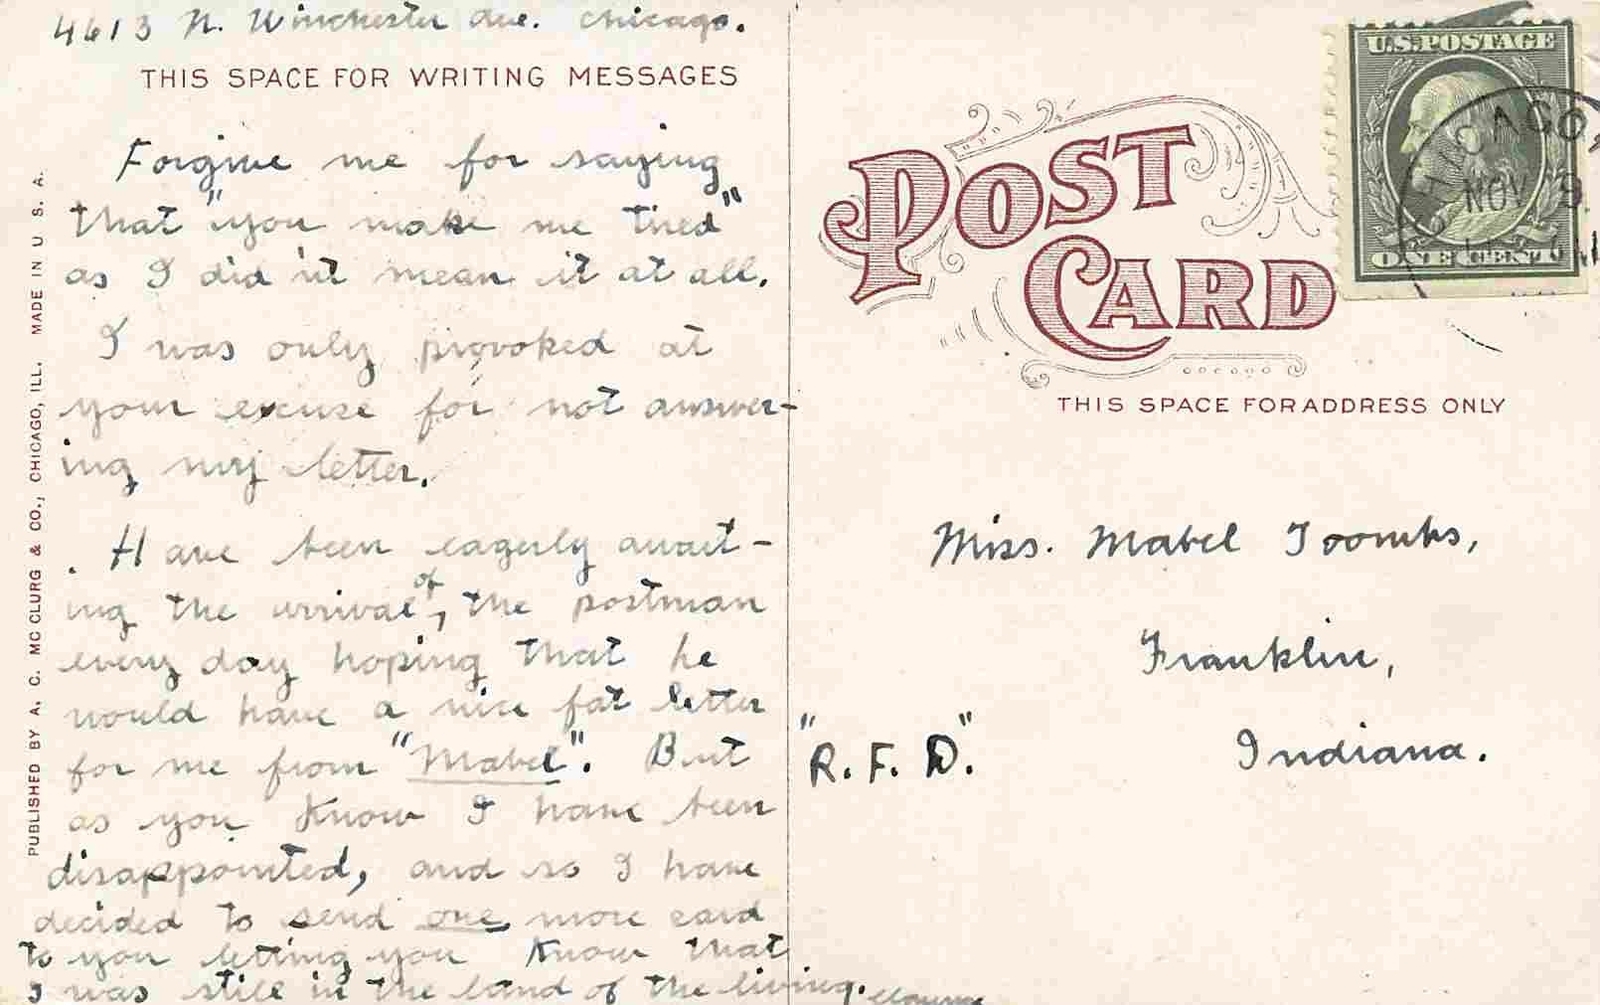 4613 N. Winchester Ave. Chicago.
THIS SPACE FOR WRITING MESSAGES
Forgive me for saying
that "you make me tired"
as I did'nt mean it at all.
I was only provoked at
your excuse for not answer-
ing my letter.
Have been eagerly await-
ing the arrival of, the postman
every day hoping that he
would have a nice fat letter
for me from "Mabel". But
as you know I have been
disappointed, and so I have
decided to send one more card
to you letting you know that
I was still in the land of the living.
PUBLISHED BY A. C. MC CLURG & CO., CHICAGO, ILL. MADE IN U. S. A.
POST
CARD
THIS SPACE FOR ADDRESS ONLY
U.S. POSTAGE
ONE CENT
CHICAGO,
NOV 9
Miss. Mabel Toombs,
Franklin,
"R. F. D."
Indiana.